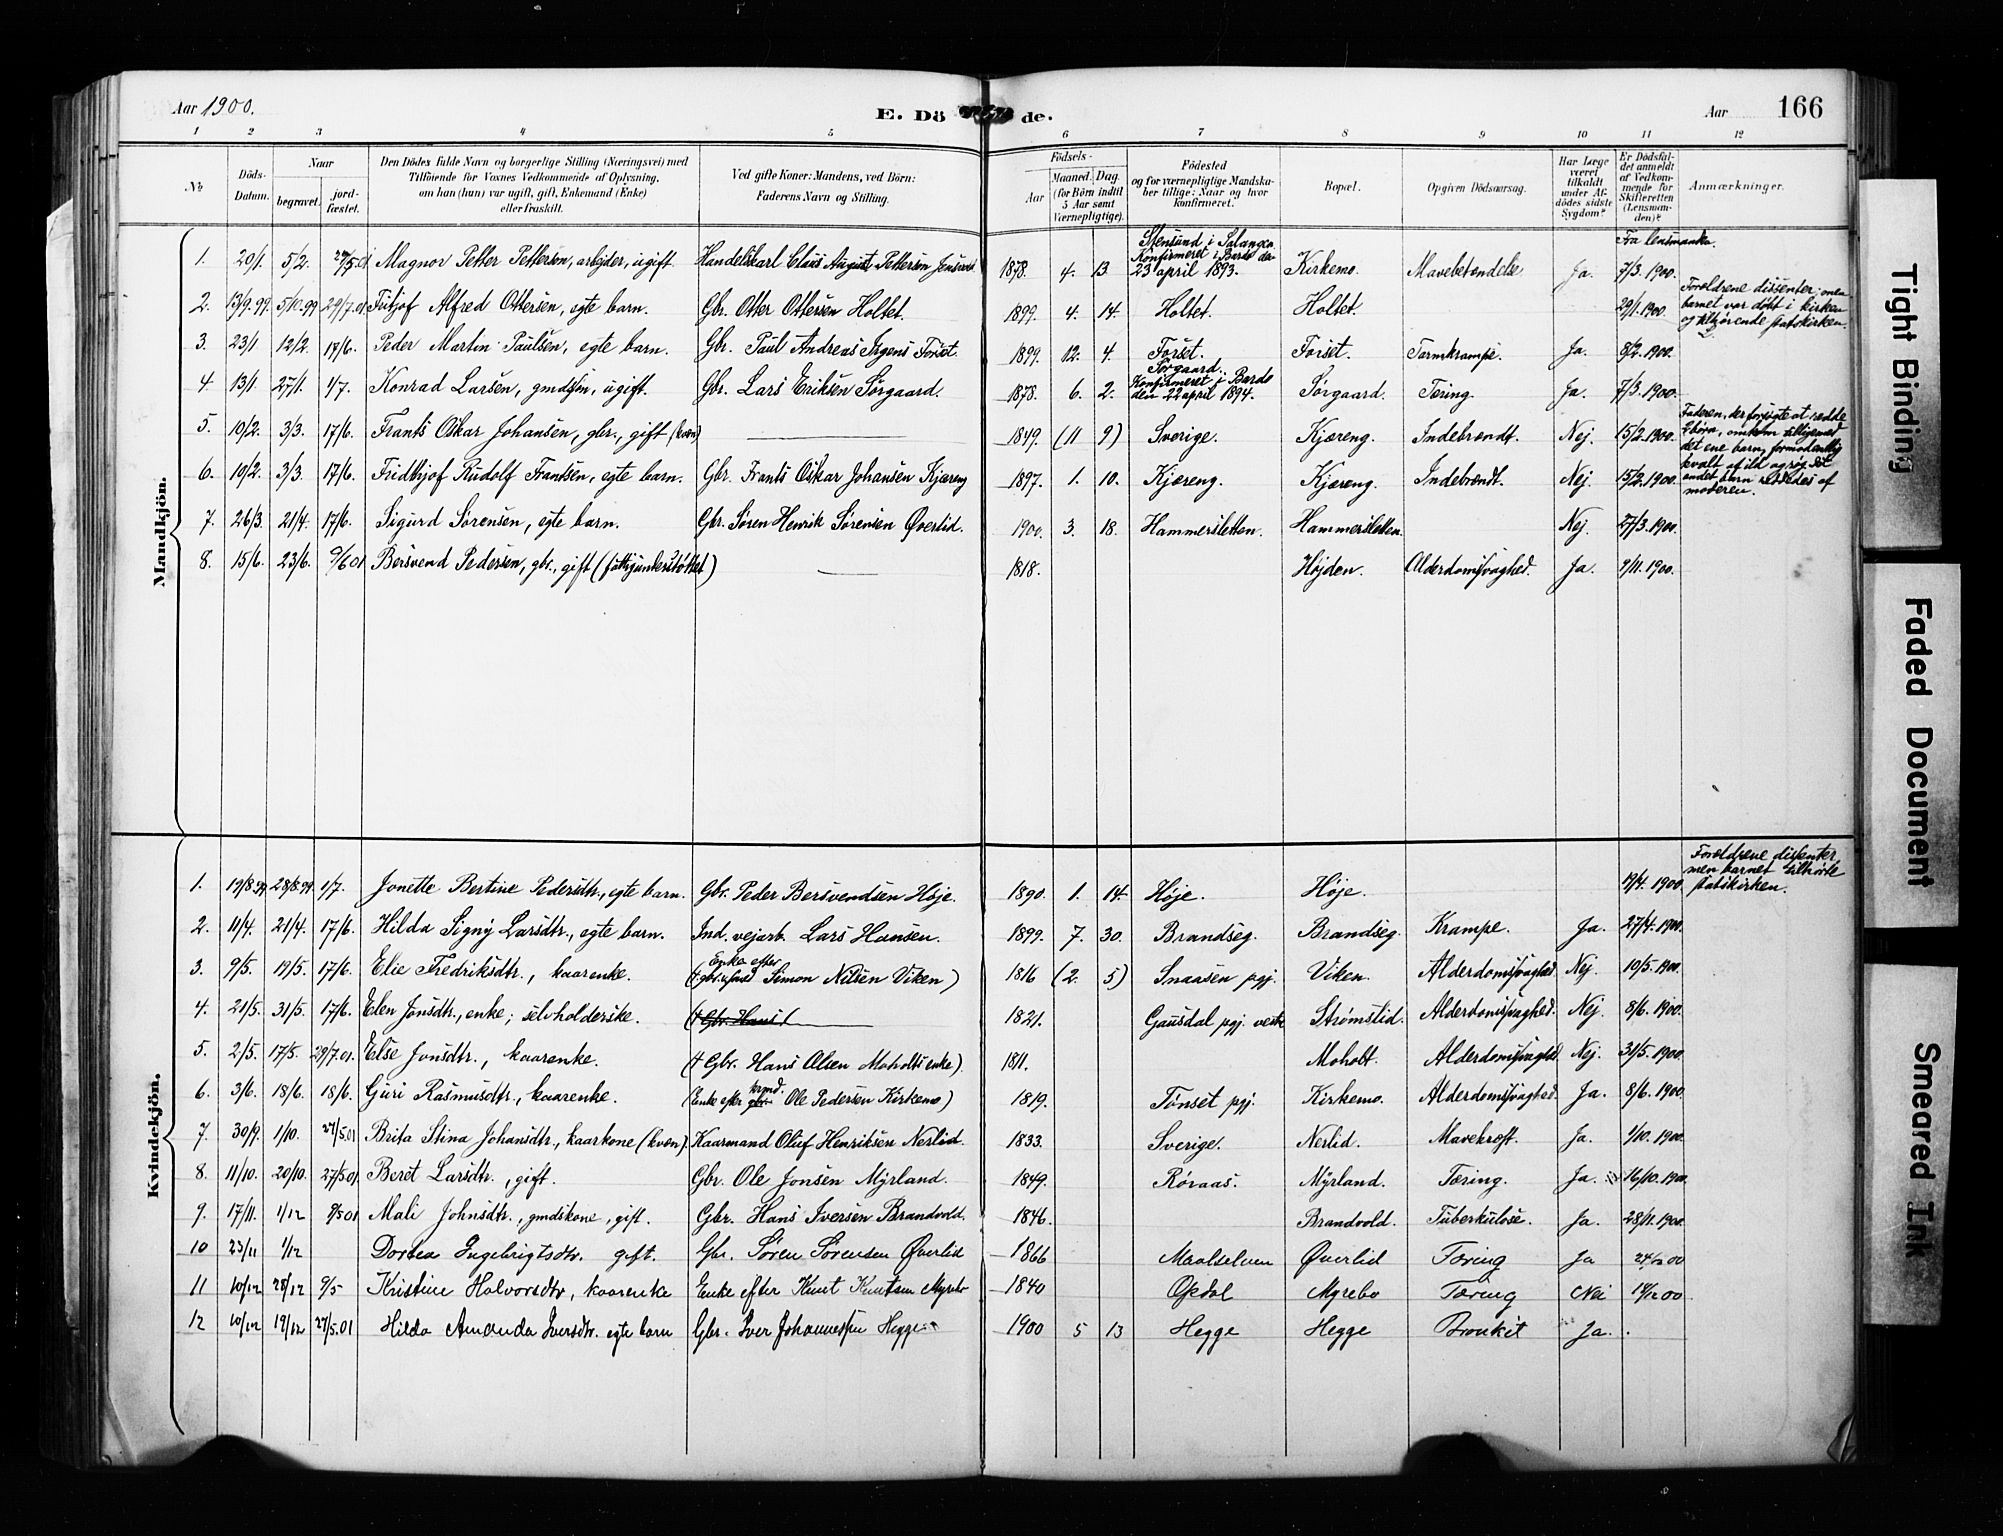 Aar 1900.
E. Dö de.
Aar
166
1 2 3 4 5 6 7 8 9 10 11 12
No
Döds-Datum.
Naar
begravet.
jord-fæstet.
Den Dödes fulde Navn og borgerlige Stilling (Næringsvei) med
Tilföiende for Voxnes Vedkommende af Oplysning,
om han (hun) var ugift, gift, Enkemand (Enke)
eller fraskilt.
Ved gifte Koner: Mandens, ved Börn:
Faderens Navn og Stilling.
Födsels-
Aar
Maaned. Dag.
(for Börn indtil
5 Aar samt
Værnepligtige).
Födested
og for værnepligtige Mandska-
ber tillige: Naar og hvor
konfirmeret.
Bopæl.
Opgiven Dödsaarsag.
Har Læge
været
tilkaldt
under Af-
dödes sidste
Sygdom?
Er Dödsfal-
det anmeldt
af Vedkom-
mende for
Skifteretten
(Lensman-
den)?
Anmærkninger.
Mandkjön.
Fra lensmanden.
1. 29/1. 5/2. 27/5.01 Magnor Petter Pettersen, arbejder, ugift. Handelskarl Claus August Pettersen 1878. 4. 13 Stensund i Salangen. Konfirmeret i Bardo den 23 april 1893. Kirkemo. Mavebetændelse Ja. 7/3. 1900.
2. 13/9.99. 5/10.99 29/7.01 Fritjof Alfred Ottersen, egte barn. Gbr. Otter Ottersen Holtet. 1899. 4. 14. Holtet. Holtet. 29/1. 1900. Forældrene dissenter, men barnet var døbt i kirken og tilhørende statskirken.
3. 23/1 12/2. 17/6. Peder Martin Paulsen, egte barn. Gbr. Paul Andreas Irgens Forset. 1899. 12. 4. Forset. Forset. Tarmkrampe. Ja. 8/2. 1900.
4. 13/1. 27/1. 1/7. Konrad Larsen, gmdsøn, ugift. Gbr. Lars Eriksen Sørgaard. 1878. 6. 2. Sørgaard. Konfirmeret i Bardo den 22 april 1894. Sørgaard. Tæring. Ja. 7/3. 1900.
5. 10/2. 3/3. 17/6. Frants Oskar Johansen, gbr., gift (kvæn) 1849. (11 9) Sverige. Kjæreng. Indebrændt. Nej. 15/2. 1900. Faderen, der forsøgte at redde 2 børn, omkom tilligemed det ene barn, formodentlig kvalt af ild og røg. Det andet barn reddedes af moderen.
6. 10/2. 3/3. 17/6. Fridthjof Rudolf Frantsen, egte barn. Gbr. Frants Oskar Johansen Kjæreng 1897. 1. 10. Kjæreng. Kjæreng. Indebrændt. Nej. 15/2. 1900.
7. 26/3. 21/4. 17/6. Sigurd Sørensen, egte barn. Gbr. Søren Henrik Sørensen Øverlid. 1900. 3. 18. Hammersletten. Hammersletten. Nej. 27/3. 1900.
8. 15/6. 23/6. 9/6 01 Bersvend Pedersen, gbr., gift (fattigunderstøttet) 1818. Højden. Alderdomssvaghed. Ja. 9/11. 1900.
Kvindekjön.
1. 19/8.99 28/8.99. 1/7. Jonette Bertine Pedersdtr., egte barn. Gbr. Peder Bersvendsen Høje. 1890. 1. 14. Høje. Høje. 19/4. 1900 Forældrene dissenter men barnet tilhørte statskirken.
2. 11/4. 21/4. 17/6. Hilda Signy Larsdtr., egte barn. Ind. vejarb. Lars Hansen. 1899. 7. 30. Brandseg. Brandseg. Krampe. Ja. 27/4. 1900.
3. 9/5. 19/5. 17/6. Elie Fredriksdtr., kaarenke. (Enke efter Simon Nilsen Viken) 1816 (2. 5) Snaasen pgj. Viken. Alderdomssvaghed Nej. 10/5. 1900.
4. 21/5. 31/5. 17/6. Elen Jonsdtr., enke; selvholderske. († Gbr. Hans) 1821. Gausdal pgj. vestre Strømslid. Alderdomssvaghed. Nej. 8/6. 1900.
5. 2/5. 17/5. 29/7.01. Else Jonsdtr., kaarenke. († Gbr. Hans Olsen Moholts enke). 1811. Moholt. Alderdomssvaghed Nej. 31/5. 1900.
6. 3/6. 18/6. 18/6. Guri Rasmusdtr., kaarenke. (Enke efter Ole Pedersen Kirkemo) 1819. Tønset pgj. Kirkemo. Alderdomssvaghed. Ja. 8/6. 1900.
7. 30/9. 1/10. 27/5.01 Brita Stina Johansdtr., kaarkone (kvæn). Kaarmand Oluf Henriksen Nerlid. 1833. Sverige. Nerlid. Mavekræft. Ja. 1/10. 1900
8. 11/10. 20/10. 27/5 01. Beret Larsdtr., gift. Gbr. Ole Jonsen Myrland. 1849. Røraas. Myrland. Tæring. Ja. 16/10. 1900.
9. 17/11. 1/12 9/5 01 Mali Johnsdtr., gmdskone, gift. Gbr. Hans Iversen Brandvold. 1846. Brandvold. Tuberkulose. Ja. 28/11. 1900.
10 23/11 1/12 Dortea Ingebrigtsdtr. gift. Gbr. Søren Sørensen Øverlid 1866 Maalselven Øverlid Tæring Ja 24/12 00
11 10/12 28/12 9/5 Kristine Halvorsdtr, kaarenke Enke efter Knut Knutsen Myrebo 1840 Opdal Myrebo Tæring Nei 14/12 00
12 10/12 19/12 27/5.01 Hilda Amanda Iversdtr. egte barn Gbr. Iver Johannessen Hegge 1900 5 13 Hegge Hegge Bronkit Ja.
Tight Binding
Faded Document
Smeared Ink